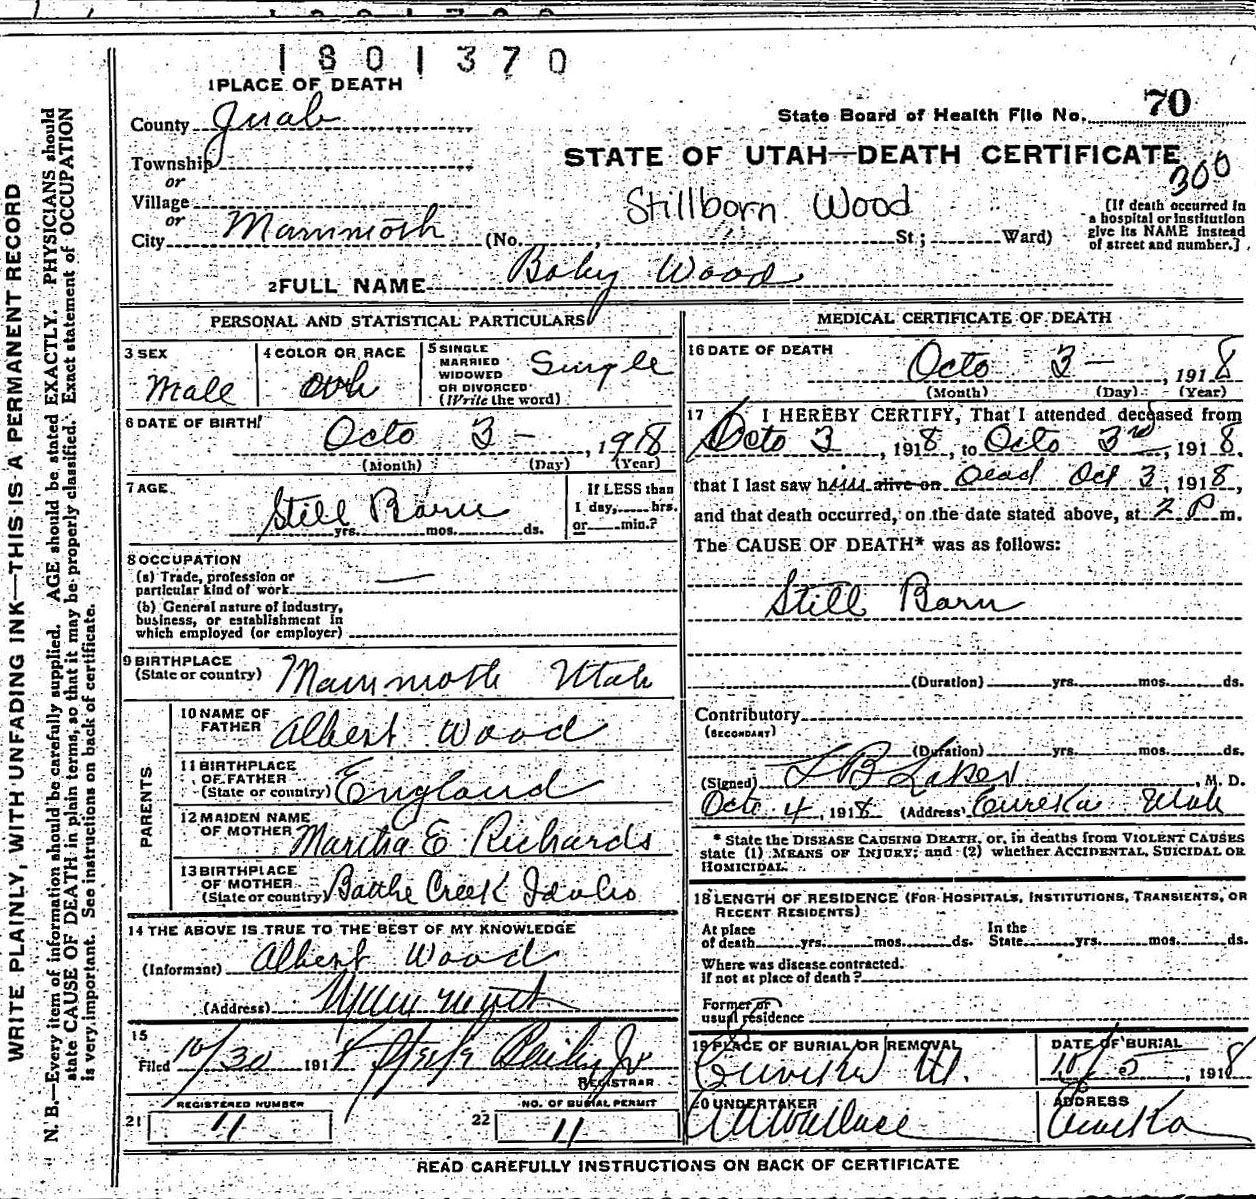 1801370
1 PLACE OF DEATH
County Juab
State Board of Health File No. 70
Township
or
STATE OF UTAH—DEATH CERTIFICATE
300
Village
or
Stillborn Wood
City Mammoth (No. , St.; Ward)
[If death occurred in
a hospital or institution
give its NAME instead
of street and number.]
2 FULL NAME Baby Wood
PERSONAL AND STATISTICAL PARTICULARS
3 SEX
Male
4 COLOR OR RACE
5 SINGLE
MARRIED
WIDOWED
OR DIVORCED
(Write the word)
Single
6 DATE OF BIRTH
Octo 3 - , 1918
(Month) (Day) (Year)
7 AGE
Still Born
yrs. mos. ds.
If LESS than
1 day, hrs.
or min.?
8 OCCUPATION
(a) Trade, profession or
particular kind of work —
(b) General nature of industry,
business, or establishment in
which employed (or employer)
9 BIRTHPLACE
(State or country) Mammoth Utah
PARENTS
10 NAME OF
FATHER Albert Wood
11 BIRTHPLACE
OF FATHER
(State or country) England
12 MAIDEN NAME
OF MOTHER Martha E Richards
13 BIRTHPLACE
OF MOTHER
(State or country) Battle Creek Idaho
14 THE ABOVE IS TRUE TO THE BEST OF MY KNOWLEDGE
(Informant) Albert Wood
(Address) Mammoth
15
Filed 10/30 1918
REGISTRAR
21 REGISTERED NUMBER
11
22 NO. OF BURIAL PERMIT
11
MEDICAL CERTIFICATE OF DEATH
16 DATE OF DEATH
Octo 3 - , 1918
(Month) (Day) (Year)
17 I HEREBY CERTIFY, That I attended deceased from
Octo 3 , 1918, to Octo 3rd, 1918,
that I last saw him alive on Dead Oct 3, 1918,
and that death occurred, on the date stated above, at 2 P m.
The CAUSE OF DEATH* was as follows:
Still Born
(Duration) yrs. mos. ds.
Contributory
(SECONDARY)
(Duration) yrs. mos. ds.
(Signed) , M. D.
Octo 4, 1918 (Address) Eureka Utah
* State the DISEASE CAUSING DEATH, or, in deaths from VIOLENT CAUSES
state (1) MEANS OF INJURY; and (2) whether ACCIDENTAL, SUICIDAL OR
HOMICIDAL.
18 LENGTH OF RESIDENCE (FOR HOSPITALS, INSTITUTIONS, TRANSIENTS, OR
RECENT RESIDENTS)
At place
of death yrs. mos. ds.
In the
State yrs. mos. ds.
Where was disease contracted.
if not at place of death?
Former or
usual residence
19 PLACE OF BURIAL OR REMOVAL
Eureka Ut.
DATE OF BURIAL
10/5, 1918
20 UNDERTAKER
Wallace
ADDRESS
Eureka
READ CAREFULLY INSTRUCTIONS ON BACK OF CERTIFICATE
WRITE PLAINLY, WITH UNFADING INK—THIS IS A PERMANENT RECORD
N. B.—Every item of information should be carefully supplied. AGE should be stated EXACTLY. PHYSICIANS should
state CAUSE OF DEATH in plain terms, so that it may be properly classified. Exact statement of OCCUPATION
is very important. See instructions on back of certificate.